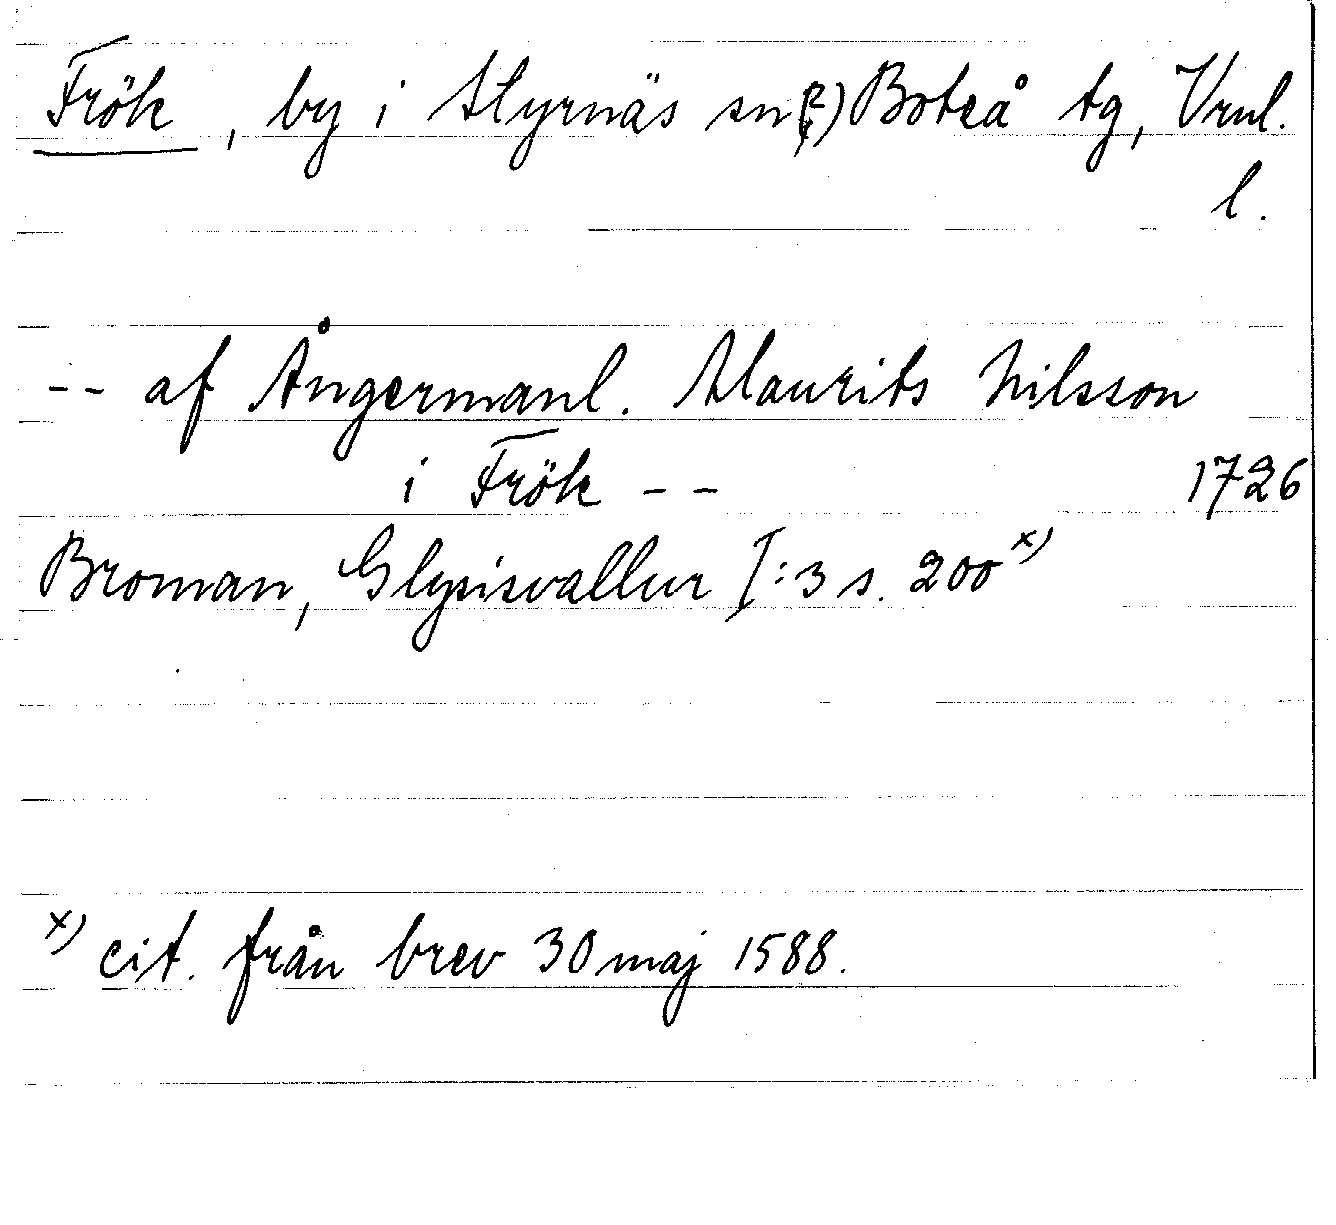 Frök, by i Styrnäs sn(?) Boteå tg, Vrnl.
l.
-- af Ångermanl. Maurits Nilsson
i Frök -- 1726
Broman, Glysisvallur I:3 s. 200 x)
x) cit. från brev 30 maj 1588.